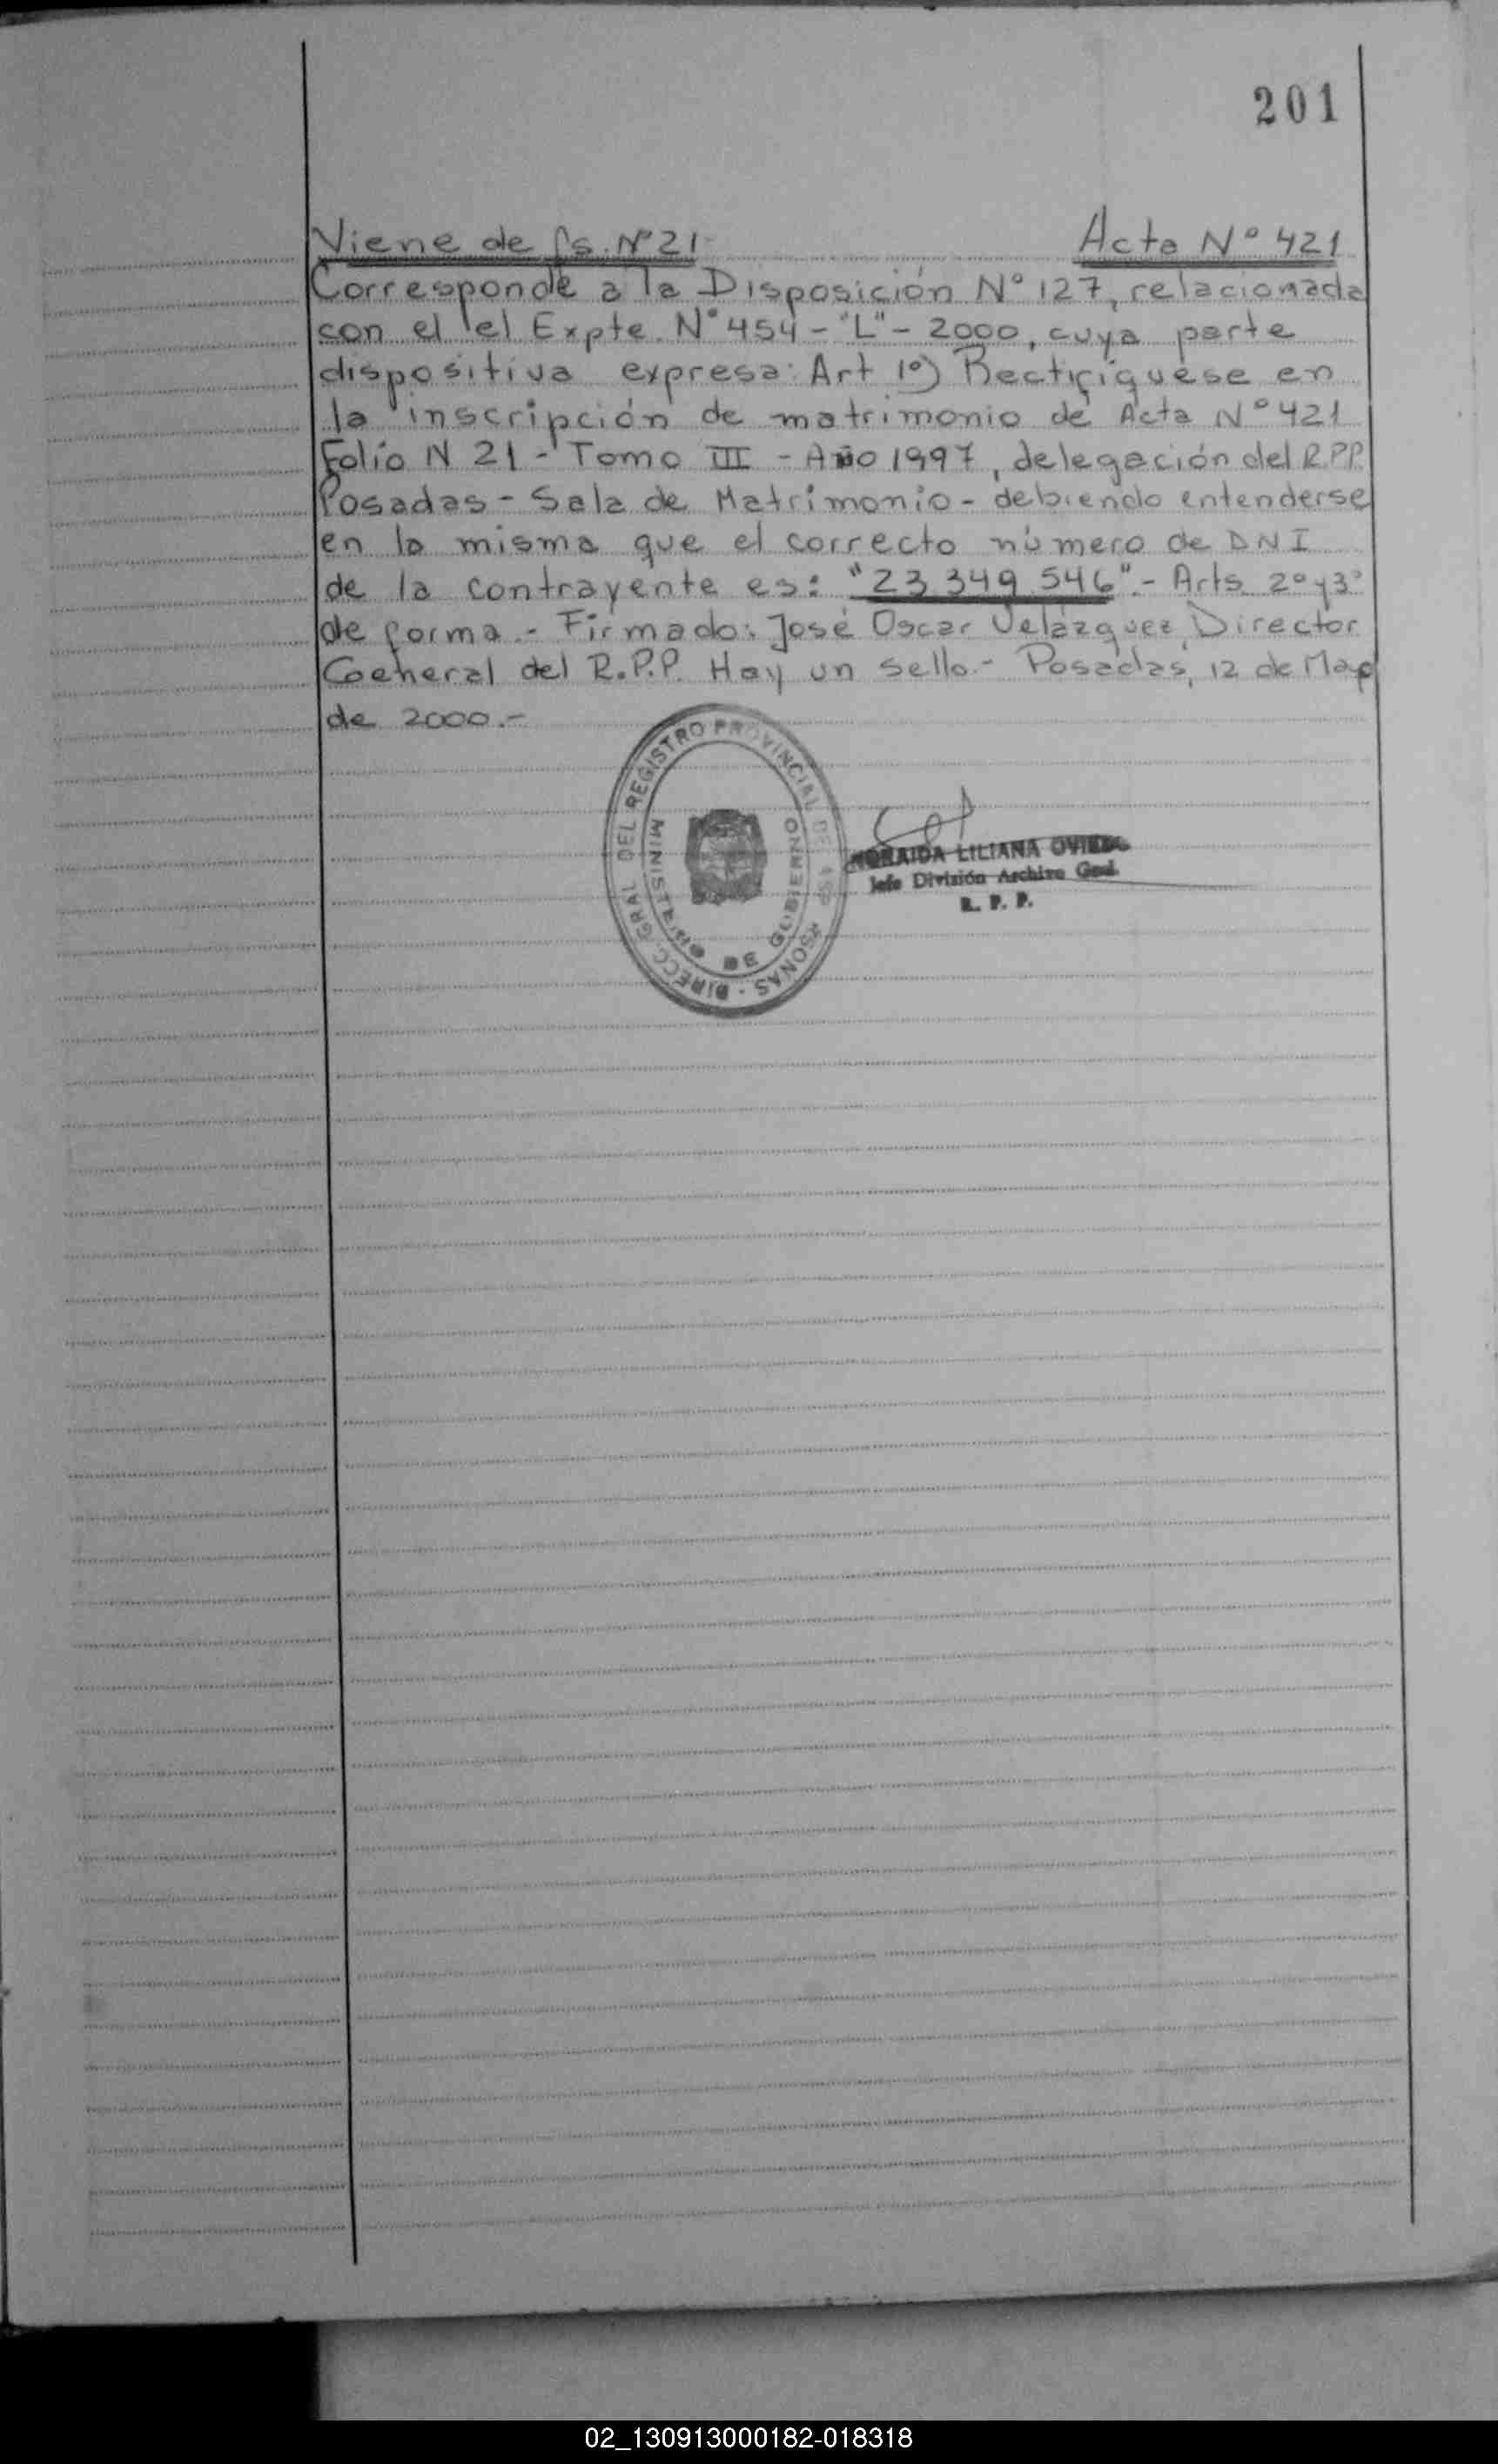 201
Viene de fs. Nº 21 Acta Nº 421
Corresponde a la Disposición Nº 127, relacionada
con el el Expte. Nº 454 - "L" - 2000, cuya parte
dispositiva expresa: Art 1º) Rectifíquese en
la inscripción de matrimonio de Acta Nº 421
Folio N 21 - Tomo III - Año 1997, delegación del R.P.P.
Posadas - Sala de Matrimonio - debiendo entenderse
en la misma que el correcto número de DNI
de la contrayente es: "23 349 546".- Arts 2º y 3º
de forma.- Firmado: José Oscar Velázquez, Director
General del R.P.P. Hay un sello.- Posadas, 12 de Mayo
de 2000.-
DIRECC. GRAL DEL REGISTRO PROVINCIAL DE LAS PERSONAS -
MINISTERIO DE GOBIERNO
LILIANA OVIEDO
Jefe División Archivo Gral.
R. P. P.
02_130913000182-018318